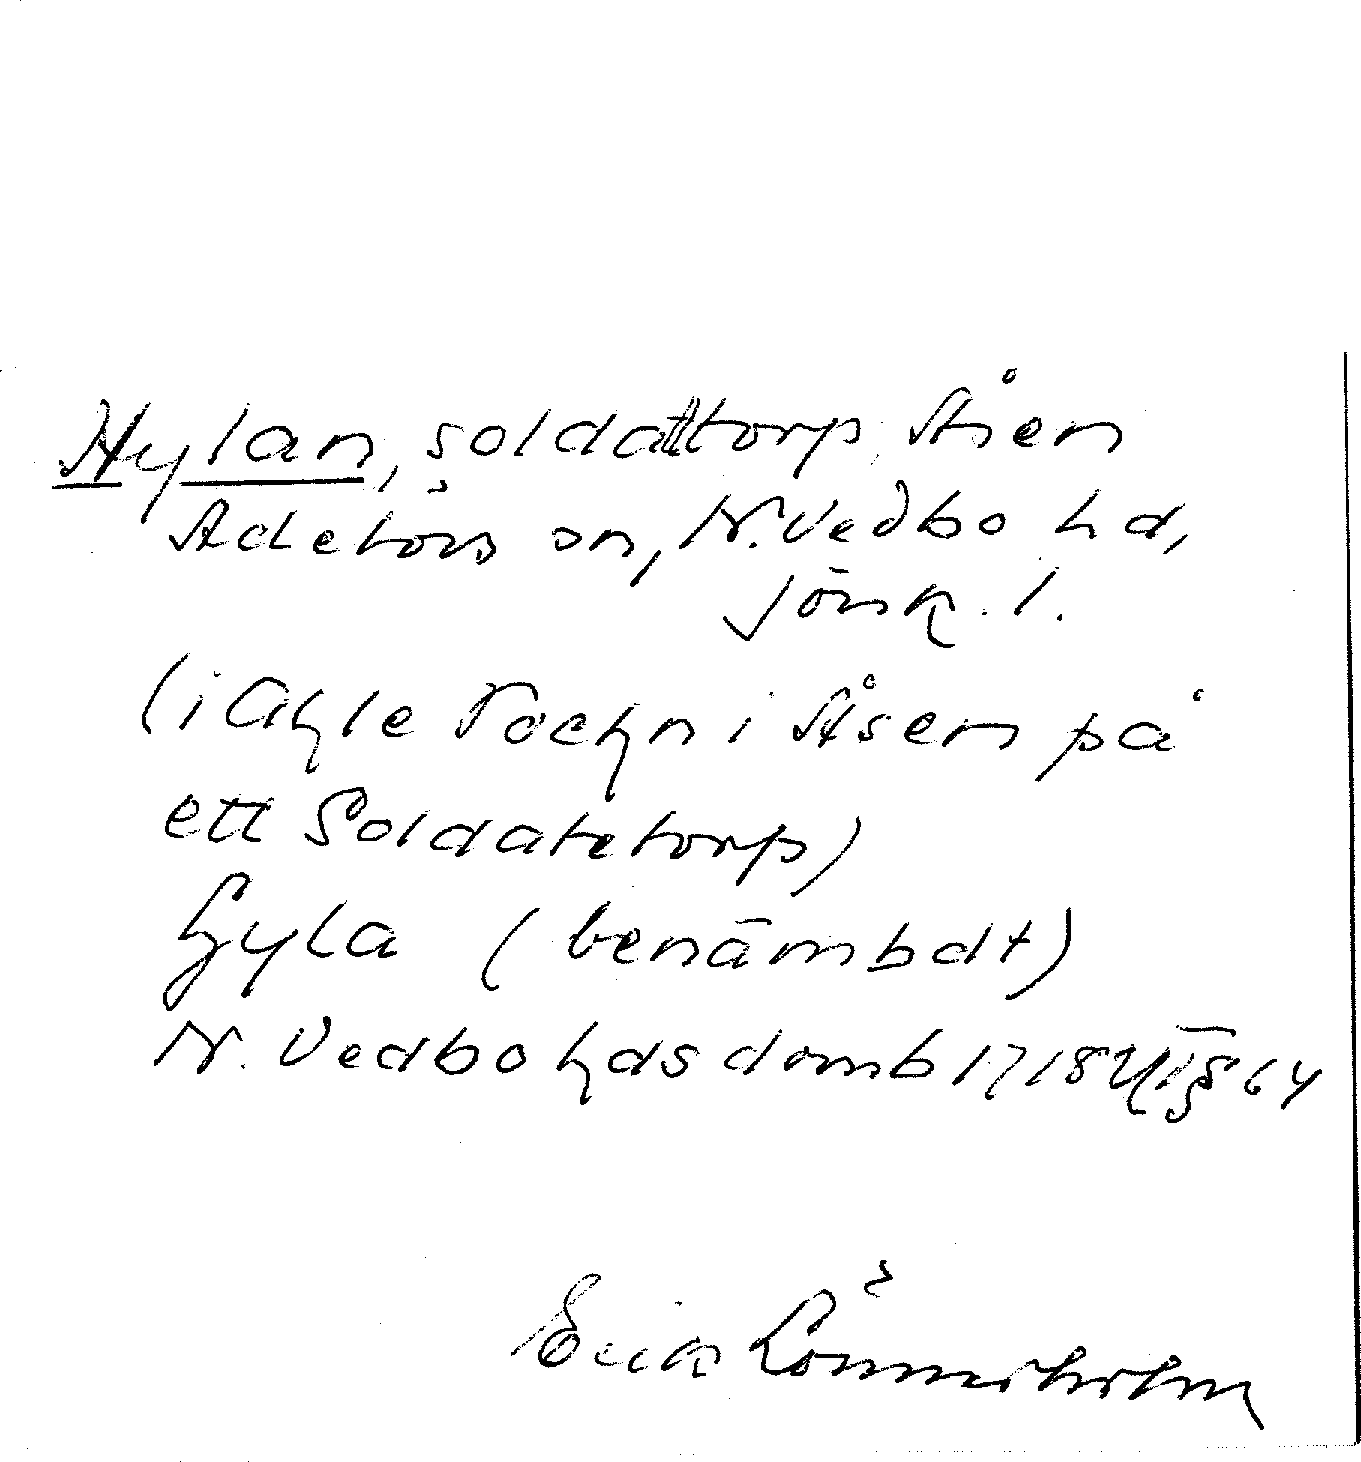 Hylan, soldattorp, Åsen
Adelövs sn, N. Vedbo hd,
Jönk. l.
(i Ahle Sochn i Åsen på
ett Soldatetorp)
Hyla (benämbdt)
N. Vedbo hds domb 1718 § 64
Erik Lönnerholm